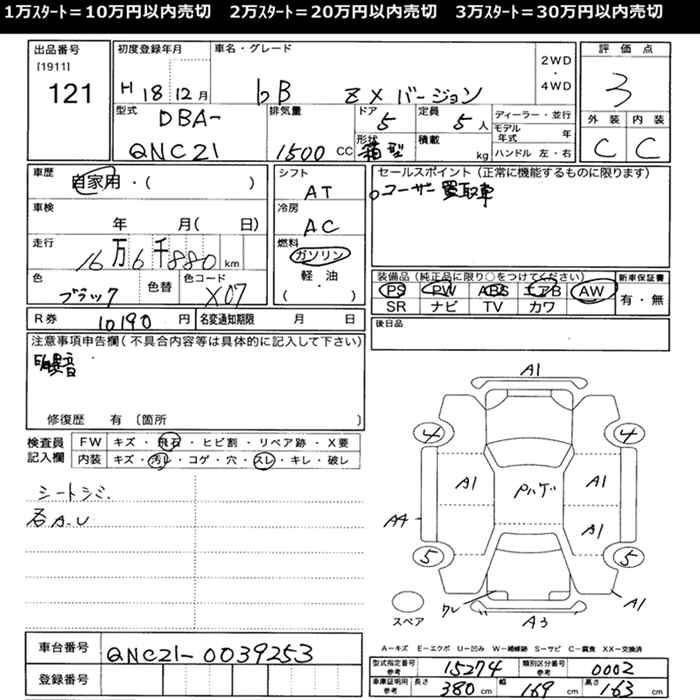 1万ｽﾀｰﾄ＝10万円以内売切　2万ｽﾀｰﾄ＝20万円以内売切　3万ｽﾀｰﾄ＝30万円以内売切
出品番号
[1911]
121
初度登録年月
H 18 12月
車名・グレード
bB ZXバージョン
2WD
・
4WD
評価点
3
型式
DBA-
QNC21
排気量
1500 CC
ドア
5
形状
箱型
定員
5人
積載
kg
ディーラー・並行
モデル年式 年
ハンドル 左・右
外装 内装
C C
車歴
自家用・( )
シフト
AT
セールスポイント（正常に機能するものに限ります）
○ユーザー買取車
車検
年 月( 日)
冷房
AC
走行
16万6千880 km
燃料
ガソリン
軽・油
( )
色
ブラック
色替
色コード
X07
装備品（純正品に限り○をつけてください）
PS PW ABS エアB AW
SR ナビ TV カワ
新車保証書
有・無
R券 10190 円
名変通知期限 月 日
後日品
注意事項申告欄(不具合内容等は具体的に記入して下さい)
修復歴 有〔箇所
検査員
記入欄
FW キズ・飛石・ヒビ割・リペア跡・X要
内装 キズ・汚レ・コゲ・穴・スレ・キレ・破レ
シートシミ.
各A.U
A1
4 4
A1 Pハゲ A1
A4 A1
5 5
スペア
ワレ A3 A1
A－キズ E－エクボ U－凹み W－補修跡 S－サビ C－腐食 XX－交換済
車台番号 QNC21-0039253
登録番号
型式指定番号
参考
15274
類別区分番号
参考
0002
車庫証明用
参考
長さ 380 cm 幅 169 cm 高さ 163 cm